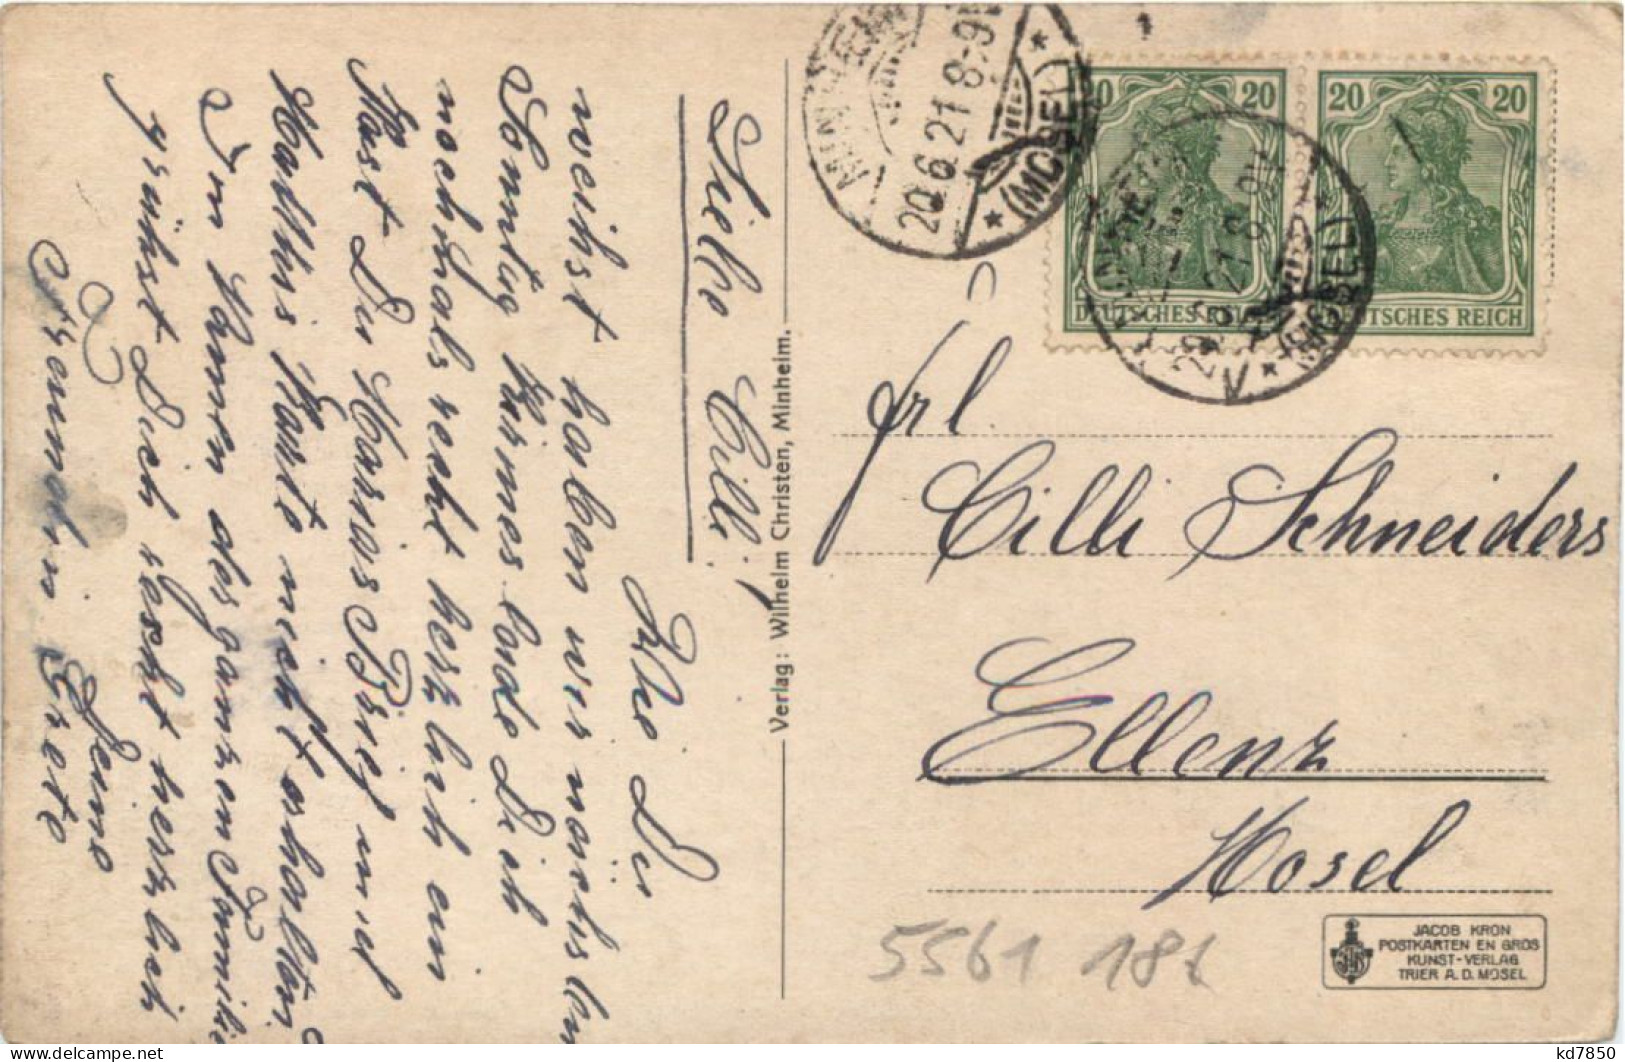 Liebe Cilli!
Wie Du
weihst haben wir nächsten
Sonntag Kirmes lande Dich
nochmals recht herzlich ein
Hast Du Marias Brief und
Karte nicht erhalten.
Im Namen der ganzen Familie
grühst Dich recht herzlich
Deine
Grete
Verlag: Wilhelm Christen, Minheim.
20.6.21 8-9
* (MOSEL) *
20 20 20
DEUTSCHES REICH
DEUTSCHES REICH
(MOSEL)
Frl.
Cilli Schneiders
Ellenz
Mosel
5561 186
JACOB KRON
POSTKARTEN EN GROS
KUNST-VERLAG
TRIER A. D. MOSEL
kd7850